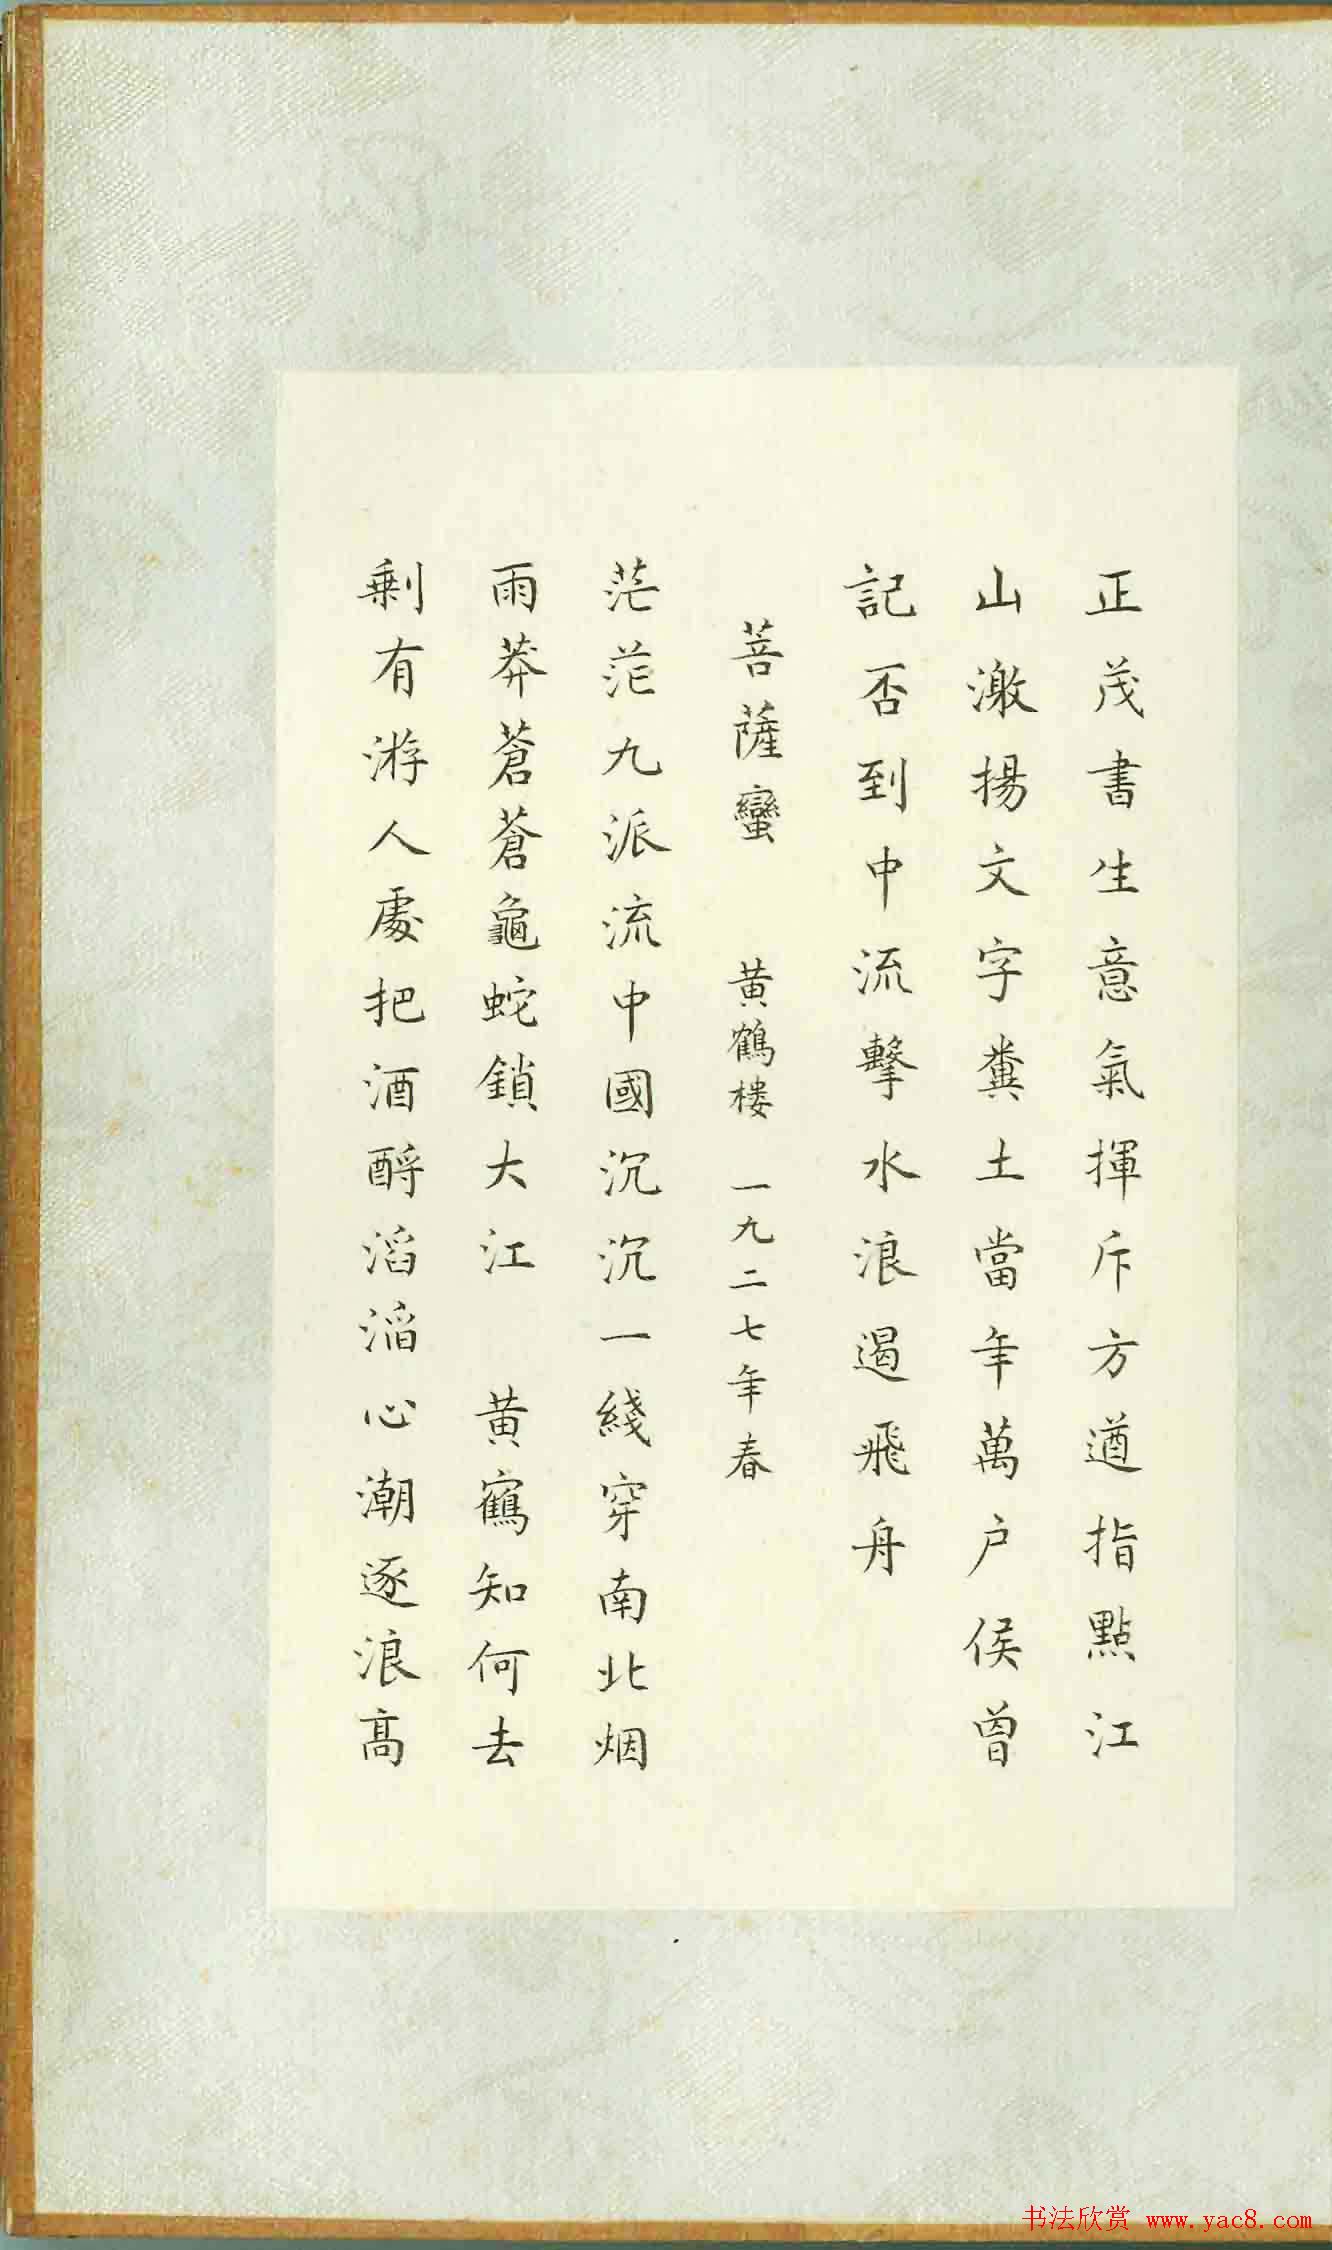 正茂書生意氣揮斥方遒指點江
山激揚文字糞土當年萬户侯曾
記否到中流擊水浪遏飛舟
菩薩蠻 黄鶴楼 一九二七年春
茫茫九派流中國沉沉一綫穿南北烟
雨莽蒼蒼龜蛇鎖大江 黄鶴知何去
剩有游人處把酒酹滔滔心潮逐浪高
书法欣赏 www.yac8.com